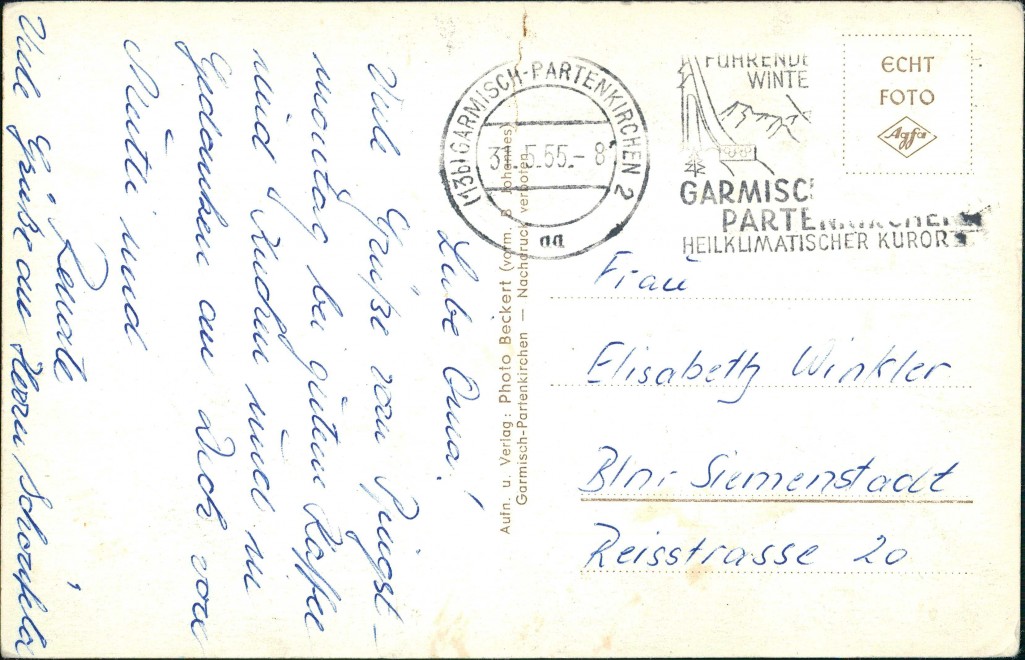 Liebe Oma!
Viele Grüße vom Pfingst-
montag bei gutem Kaffee
und Kuchen und in
Gedanken an Dich von
Mutti und
Renate
Viele Grüße an Herrn
Aufn. u. Verlag: Photo Beckert (vorm. B. Johannes)
Garmisch-Partenkirchen — Nachdruck verboten
(13b) GARMISCH-PARTENKIRCHEN 2
31.5.55.-8
aa
FÜHRENDE
WINTE
GARMISCH
PARTENKIRCHEN
HEILKLIMATISCHER KURORT
ECHT
FOTO
Agfa
Frau
Elisabeth Winkler
Bln.-Siemensstadt
Reisstrasse 20